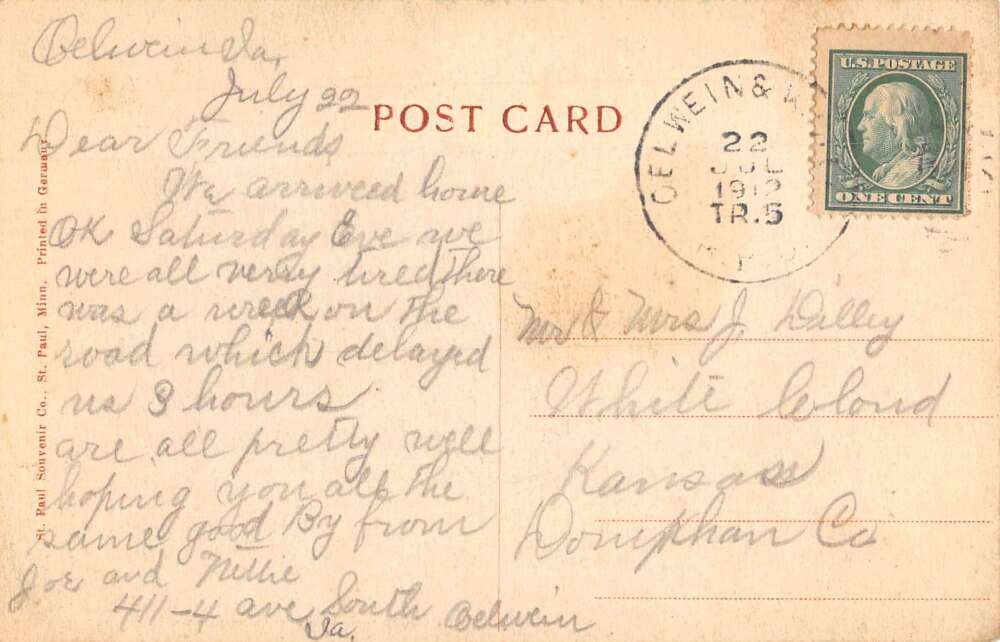 Oelwein Ia,
July 22
Dear Friends
We arriveed home
OK Saturday Eve we
were all verry tired there
was a wreck on the
road which delayed
us 3 hours
are all pretty well
hoping you all the
same good By from
Joe and Nellie
411-4 ave South Oelwein
Ia.
POST CARD
St. Paul Souvenir Co., St. Paul, Minn. Printed in Germany
OELWEIN &
22
JUL
1912
TR.5
R.P.O.
U.S. POSTAGE
ONE CENT
Mr & Mrs J. Dilley
White Cloud
Kansas
Doniphan Co